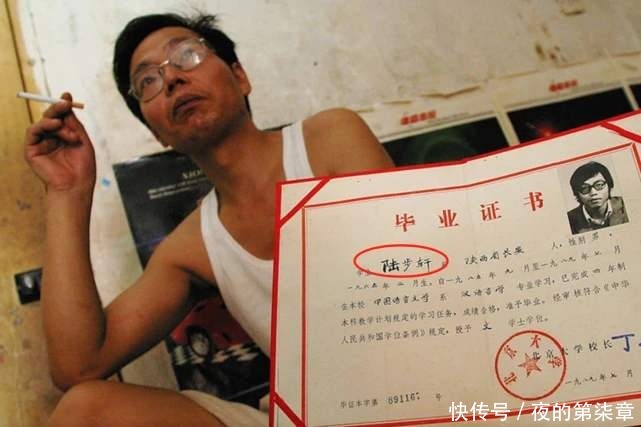 毕业证书
学生 陆步轩 陕西省长安 人，性别 男，
一九六五年 二 月生，自一九八五年 九 月至一九八九年 七 月
在本校 中国语言文学 系 汉语言学 专业学习，已完成 四 年制
本科教学计划规定的学习任务，成绩合格，准予毕业。经审核符合《中华
人民共和国学位条例》规定，授予 文 学士学位。
北京大学
北京大学校长 丁
一九八九年 七 月
毕证本字第 891167 号
快传号 / 夜的第柒章